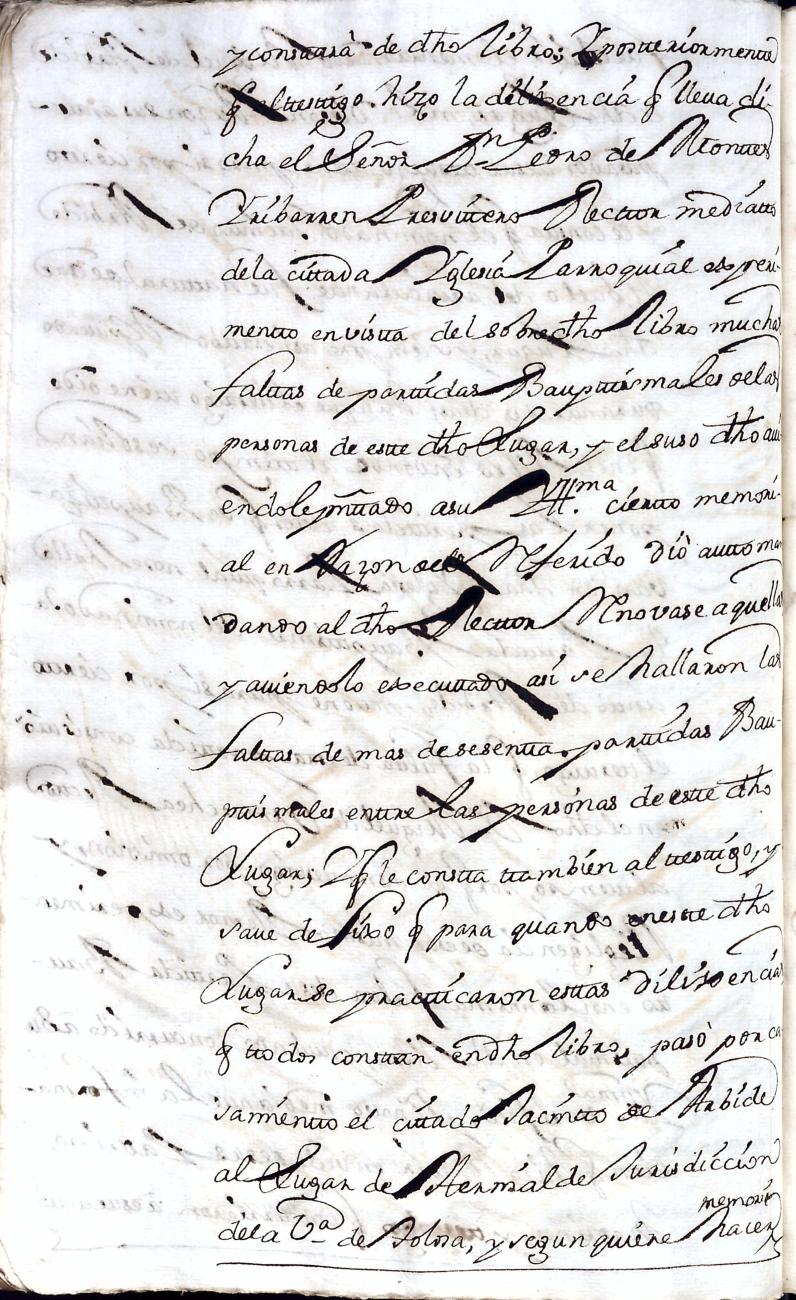 y constará de dho libro; Y posteriormente
q el testigo hizo la dilixencia q lleva di-
cha el Señor Dn Pedro de Montes
Yribarren Presvitero Rector mediatto
dela cittada Yglesia Parroquial experi-
mentto en vista del sobre dho libro muchas
faltas de partidas Bauptismales delas
personas de este dho Lugar, y el suso dho avi-
endole pnttado asu Yll.ma cierto memori-
al en Razon delo Rferido dió autto man
dando al dho Rector Rnovase aquellas
y aviendolo executtado, asi se hallaron las
faltas de mas de sesentta partidas Bau-
ptismales entre las personas de este dho
Lugar; Y q le consta ttambien al testigo, y
save de fixo q para quando en este dho
Lugar se practticaron estas dilixencias
q ttodos constan en dho libro, pasò por ca
samientto el cittado Jacintto de Arbide
al Lugar de Hernialde Jurisdiccion
dela Va de Tolosa, y segun quiere hacer
memoria